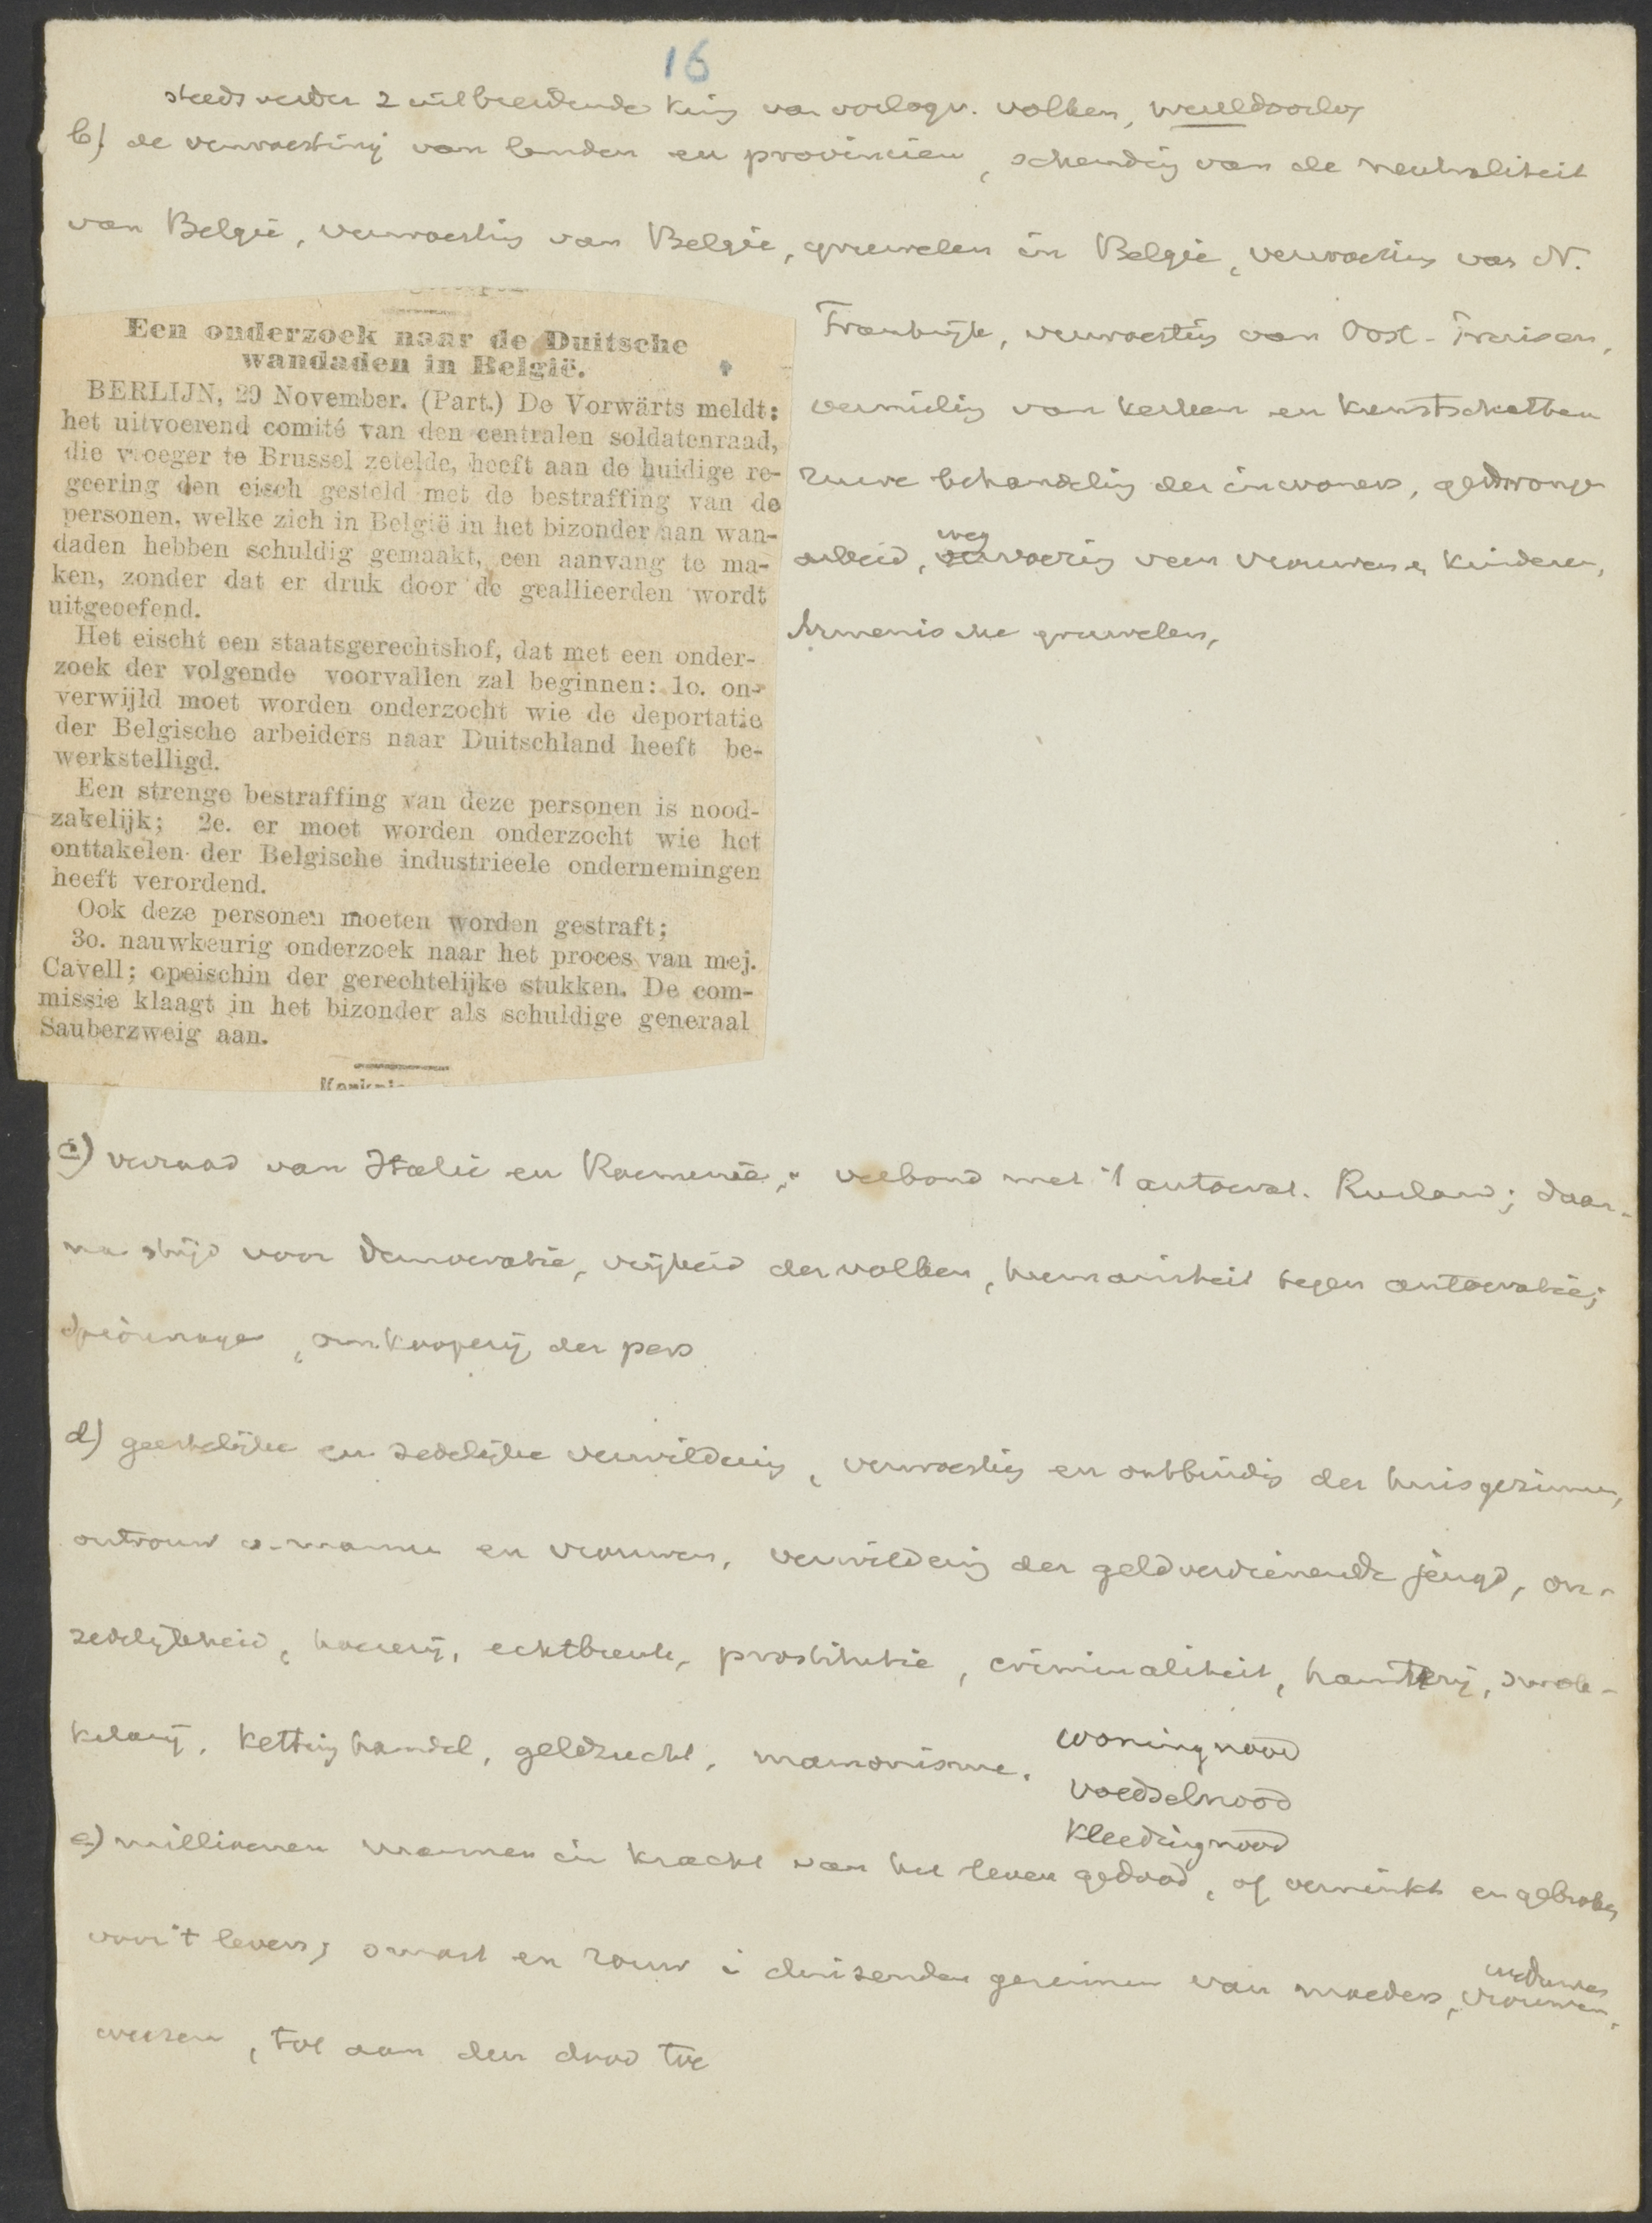 16
steeds verder z uitbreidende kring van oorlogv. volken, wereldoorlog
b) de verwoesting van landen en provincien, schending van de neutraliteit
van België, verwoesting van België, gruwelen in België, verwoesting van N.
Frankrijk, verwoesting van Oost-Pruisen,
vernieling van kerken en kunstschatten
ruwe behandeling der inwoners, gedwongen
weg
arbeid, vervoering van vrouwen en kinderen,
Armenische gruwelen,
Een onderzoek naar de Duitsche
wandaden in België.
BERLIJN, 29 November. (Part.) De Vorwärts meldt:
het uitvoerend comité van den centralen soldatenraad,
die vroeger te Brussel zetelde, heeft aan de huidige re-
geering den eisch gesteld met de bestraffing van de
personen, welke zich in België in het bizonder aan wan-
daden hebben schuldig gemaakt, een aanvang te ma-
ken, zonder dat er druk door de geallieerden wordt
uitgeoefend.
Het eischt een staatsgerechtshof, dat met een onder-
zoek der volgende voorvallen zal beginnen: 1o. on-
verwijld moet worden onderzocht wie de deportatie
der Belgische arbeiders naar Duitschland heeft be-
werkstelligd.
Een strenge bestraffing van deze personen is nood-
zakelijk; 2e. er moet worden onderzocht wie het
onttakelen der Belgische industrieele ondernemingen
heeft verordend.
Ook deze personen moeten worden gestraft;
3o. nauwkeurig onderzoek naar het proces van mej.
Cavell; opeischin der gerechtelijke stukken. De com-
missie klaagt in het bizonder als schuldige generaal
Sauberzweig aan.
c) verraad van Italië en Roemenië; verbond met 't autocrat. Rusland; daar-
na strijd voor democratie, vrijheid der volken, humaniteit tegen autocratie;
spionnage, omkooperij der pers
d) geestelijke en zedelijke verwildering, verwoesting en ontbinding der huisgezinnen,
ontrouw v. mannen en vrouwen, verwildering der geldverdienende jeugd, on-
zedelijkheid, hoererij, echtbreuk, prostitutie, criminaliteit, smok-
kelarij, kettinghandel, geldzucht, mammonisme.
woningnood
voedselnood
kleedingnood
e) millioenen mannen in kracht van het leven gedood, of verminkt en gebroken
voor 't leven; smart en rouw i duizenden gezinnen van moeders, vrouwen,
weduwen
weezen, tot aan den dood toe